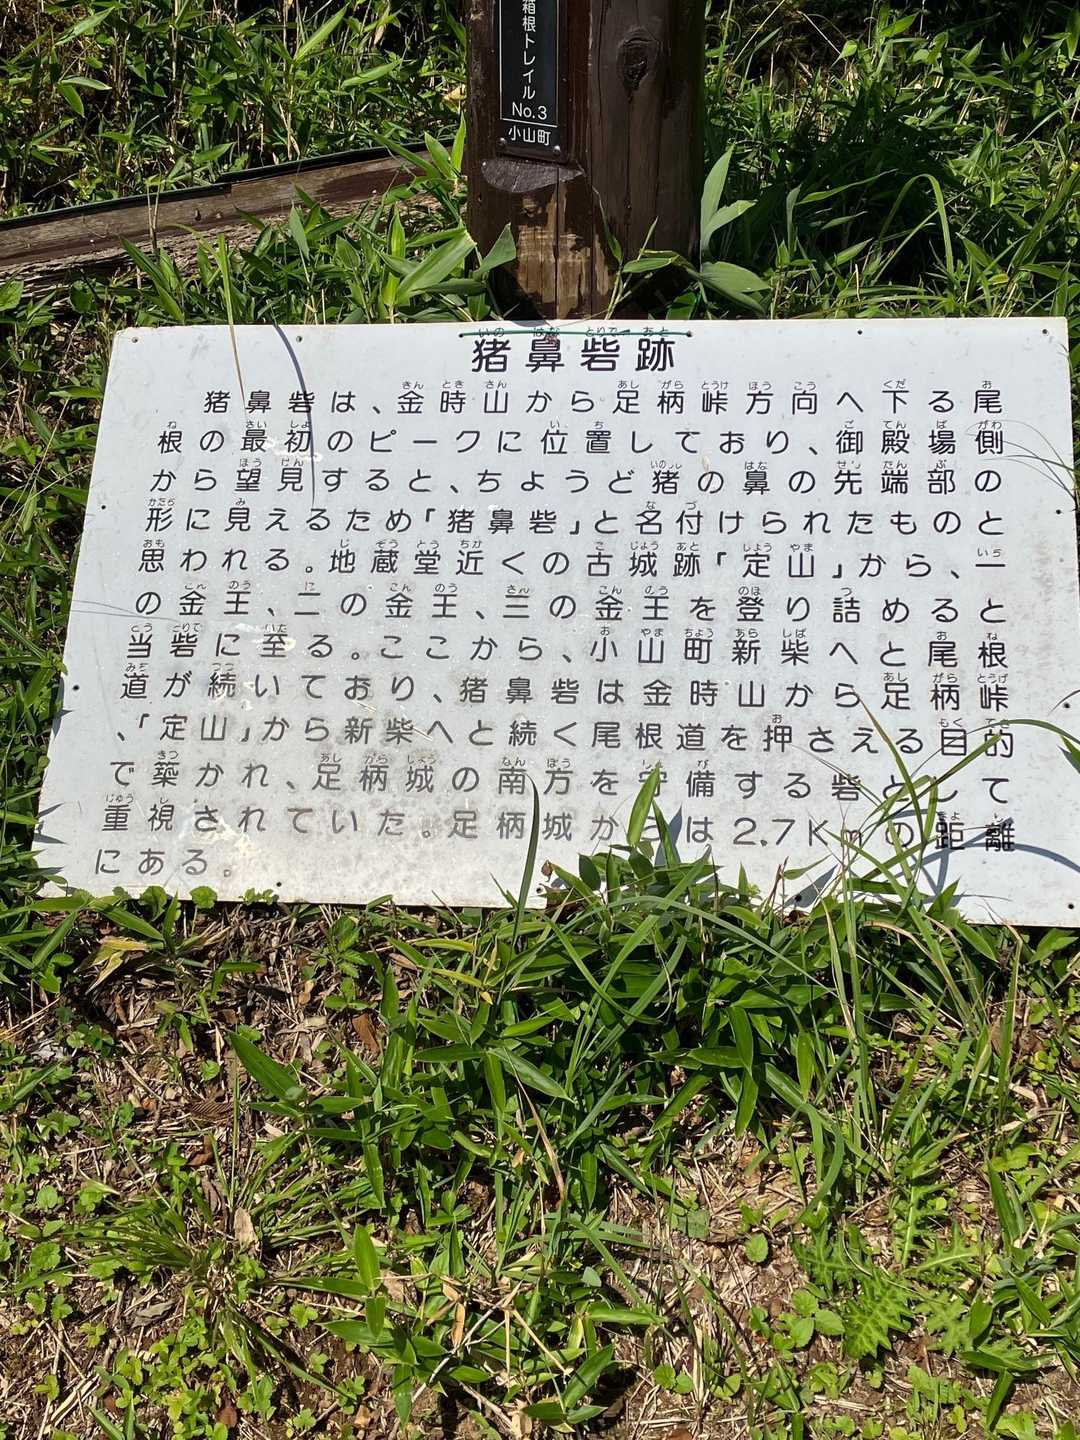 箱根トレイル
No.3
小山町
猪鼻砦跡
猪鼻砦は、金時山から足柄峠方向へ下る尾
根の最初のピークに位置しており、御殿場側
から望見すると、ちょうど猪の鼻の先端部の
形に見えるため「猪鼻砦」と名付けられたものと
思われる。地蔵堂近くの古城跡「定山」から、一
の金王、二の金王、三の金王を登り詰めると
当砦に至る。ここから、小山町新柴へと尾根
道が続いており、猪鼻砦は金時山から足柄峠
、「定山」から新柴へと続く尾根道を押さえる目的
で築かれ、足柄城の南方を守備する砦として
重視されていた。足柄城からは2.7Kmの距離
にある。